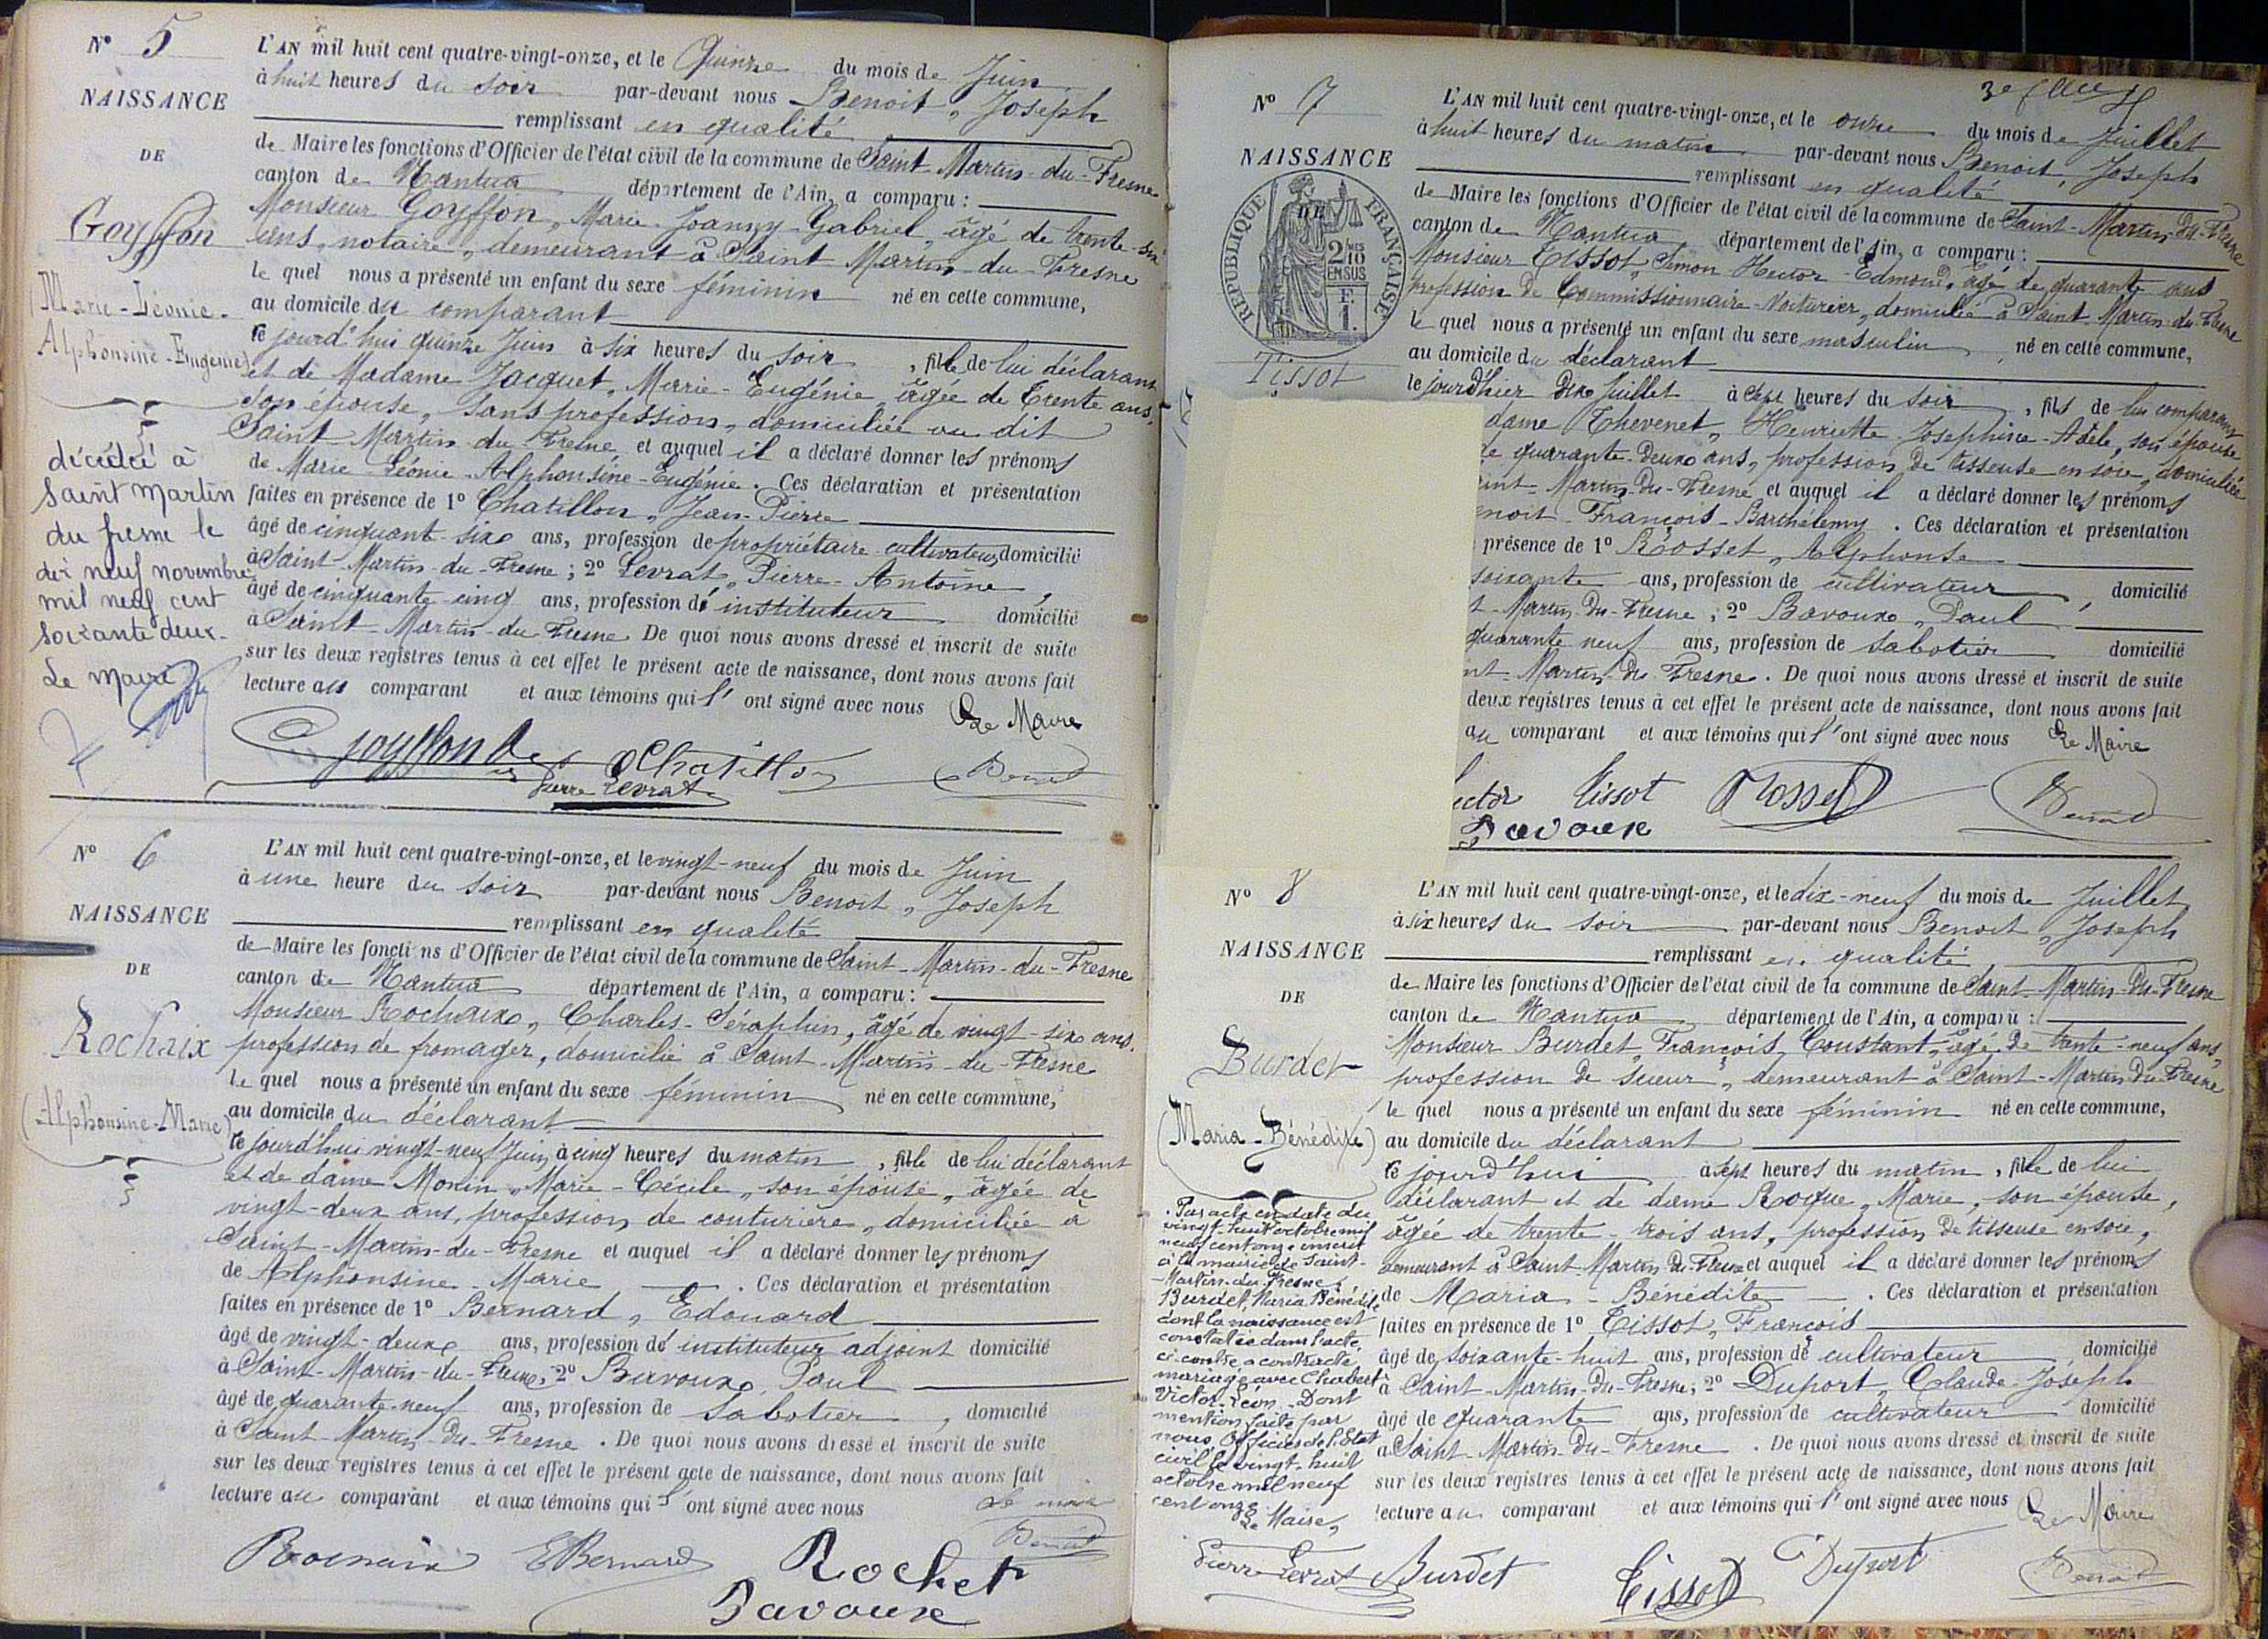 N° 5
NAISSANCE
DE
Goyffon
(Marie-Léonie-
Alphonsine-Eugénie)
décédée à
Saint Martin
du fresne le
dix neuf novembre
mil neuf cent
soixante deux.
Le Maire
L'AN mil huit cent quatre-vingt-onze, et le Quinze du mois de Juin
à huit heures du soir par-devant nous Benoit, Joseph
remplissant en qualité
de Maire les fonctions d'Officier de l'état civil de la commune de Saint-Martin-du-Fresne
canton de Nantua département de l'Ain, a comparu :
Monsieur Goyffon, Marie-Joanny-Gabriel, âgé de trente-six
ans, notaire, demeurant à Saint Martin-du-Fresne
le quel nous a présenté un enfant du sexe féminin né en cette commune,
au domicile du comparant
ce jourd'hui quinze Juin à six heures du soir, fille de lui déclarant
et de Madame Jacquet, Marie-Eugénie âgée de trente ans,
son épouse, sans profession, domiciliée au dit
Saint Martin-du-Fresne, et auquel il a déclaré donner les prénoms
de Marie-Léonie-Alphonsine-Eugénie. Ces déclaration et présentation
faites en présence de 1° Chatillon, Jean-Pierre
âgé de cinquant-six ans, profession de propriétaire cultivateur, domicilié
à Saint-Martin-du-Fresne ; 2° Levrat, Pierre-Antoine,
âgé de cinquante-cinq ans, profession d' instituteur domicilié
à Saint-Martin-du-Fresne De quoi nous avons dressé et inscrit de suite
sur les deux registres tenus à cet effet le présent acte de naissance, dont nous avons fait
lecture au comparant et aux témoins qui l'ont signé avec nous Le Maire
Goyffon Chatillon Benoit
Pierre Levrat
N° 6
NAISSANCE
DE
Rochaix
(Alphonsine-Marie)
L'AN mil huit cent quatre-vingt-onze, et le vingt-neuf du mois de Juin
à une heure du soir par-devant nous Benoit, Joseph
remplissant en qualité
de Maire les foncti ns d'Officier de l'état civil de la commune de Saint-Martin-du-Fresne
canton de Nantua département de l'Ain, a comparu :
Monsieur Rochaix, Charles-Séraphin, âgé de vingt-six ans,
profession de fromager, domicilié à Saint-Martin-du-Fresne
le quel nous a présenté un enfant du sexe féminin né en cette commune,
au domicile du déclarant
ce jourd'hui vingt-neuf Juin, à cinq heures du matin, fille de lui déclarant
et de dame Monin, Marie-Cécile, son épouse, âgée de
vingt-deux ans, profession de couturière, domiciliée à
Saint-Martin-du-Fresne et auquel il a déclaré donner les prénoms
de Alphonsine-Marie. Ces déclaration et présentation
faites en présence de 1° Bernard, Edouard
âgé de vingt-deux ans, profession d' instituteur adjoint domicilié
à Saint-Martin-du-Fresne, 2° Bavoux, Paul
âgé de quarante-neuf ans, profession de sabotier, domicilié
à Saint-Martin-du-Fresne. De quoi nous avons dressé et inscrit de suite
sur les deux registres tenus à cet effet le présent acte de naissance, dont nous avons fait
lecture au comparant et aux témoins qui l'ont signé avec nous
Le maire
Rochaix EBernard Rochet Benoit
Bavoux
N° 7
NAISSANCE
DE
REPUBLIQUE FRANÇAISE
2 MES 10 EN SUS
F. 1.
Tissot
L'AN mil huit cent quatre-vingt-onze, et le onze du mois de Juillet
à huit heures du matin par-devant nous Benoit, Joseph
remplissant en qualité
de Maire les fonctions d'Officier de l'état civil de la commune de Saint-Martin-du-Fresne
canton de Nantua département de l'Ain, a comparu :
Monsieur Tissot, Simon Hector-Edmond, âgé de quarante ans
profession de Commissionnaire-Voiturier, domicilié à Saint-Martin-du-Fresne
le quel nous a présenté un enfant du sexe masculin né en cette commune,
au domicile du déclarant
le jourd'hier dix Juillet à sept heures du soir, fils de lui comparant
dame Thevenet, Henriette-Josephine-Adèle, son épouse
de quarante-deux ans, profession de tisseuse en soie, domiciliée
int-Martin-du-Fresne et auquel il a déclaré donner les prénoms
enoit-François-Barthélemy. Ces déclaration et présentation
présence de 1° Rosset, Alphonse
soixante ans, profession de cultivateur, domicilié
t-Martin-du-Fresne ; 2° Bavoux, Paul
quarante neuf ans, profession de sabotier domicilié
nt-Martin-du-Fresne. De quoi nous avons dressé et inscrit de suite
deux registres tenus à cet effet le présent acte de naissance, dont nous avons fait
au comparant et aux témoins qui l'ont signé avec nous Le Maire
ector Tissot Rosset Benoit
Bavoux
N° 8
NAISSANCE
DE
Burdet
(Maria-Bénédite)
Par acte en date du
vingt-huit octobre mil
neuf cent onze inscrit
à la mairie de Saint-
-Martin-du-Fresne,
Burdet, Maria Bénédite
dont la naissance est
constatée dans l'acte
ci-contre a contracté
mariage avec Chabert
Victor-Léon. Dont
mention faite par
nous Officier de l'Etat
civil le vingt-huit
octobre mil neuf
cent onze.
Le Maire,
Pierre Levrat
L'AN mil huit cent quatre-vingt-onze, et le dix-neuf du mois de Juillet
à six heures du soir par-devant nous Benoit, Joseph
remplissant en qualité
de Maire les fonctions d'Officier de l'état civil de la commune de Saint-Martin-du-Fresne
canton de Nantua département de l'Ain, a comparu :
Monsieur Burdet, François Constant, âgé de trente-neuf ans,
profession de sueur, demeurant à Saint-Martin-du-Fresne
le quel nous a présenté un enfant du sexe féminin né en cette commune,
au domicile du déclarant
ce jourd'hui à sept heures du matin, fille de lui
déclarant et de dame Roque, Marie, son épouse,
âgée de trente-trois ans, profession de tisseuse en soie,
demeurant à Saint-Martin-du-Fresne et auquel il a déclaré donner les prénoms
de Maria-Bénédite. Ces déclaration et présentation
faites en présence de 1° Tissot, François
âgé de soixante-huit ans, profession de cultivateur domicilié
à Saint-Martin-du-Fresne ; 2° Duport, Claude-Joseph
âgé de quarante ans, profession de cultivateur domicilié
à Saint-Martin-du-Fresne. De quoi nous avons dressé et inscrit de suite
sur les deux registres tenus à cet effet le présent acte de naissance, dont nous avons fait
lecture au comparant et aux témoins qui l'ont signé avec nous Le Maire
Burdet Tissot Duport Benoit